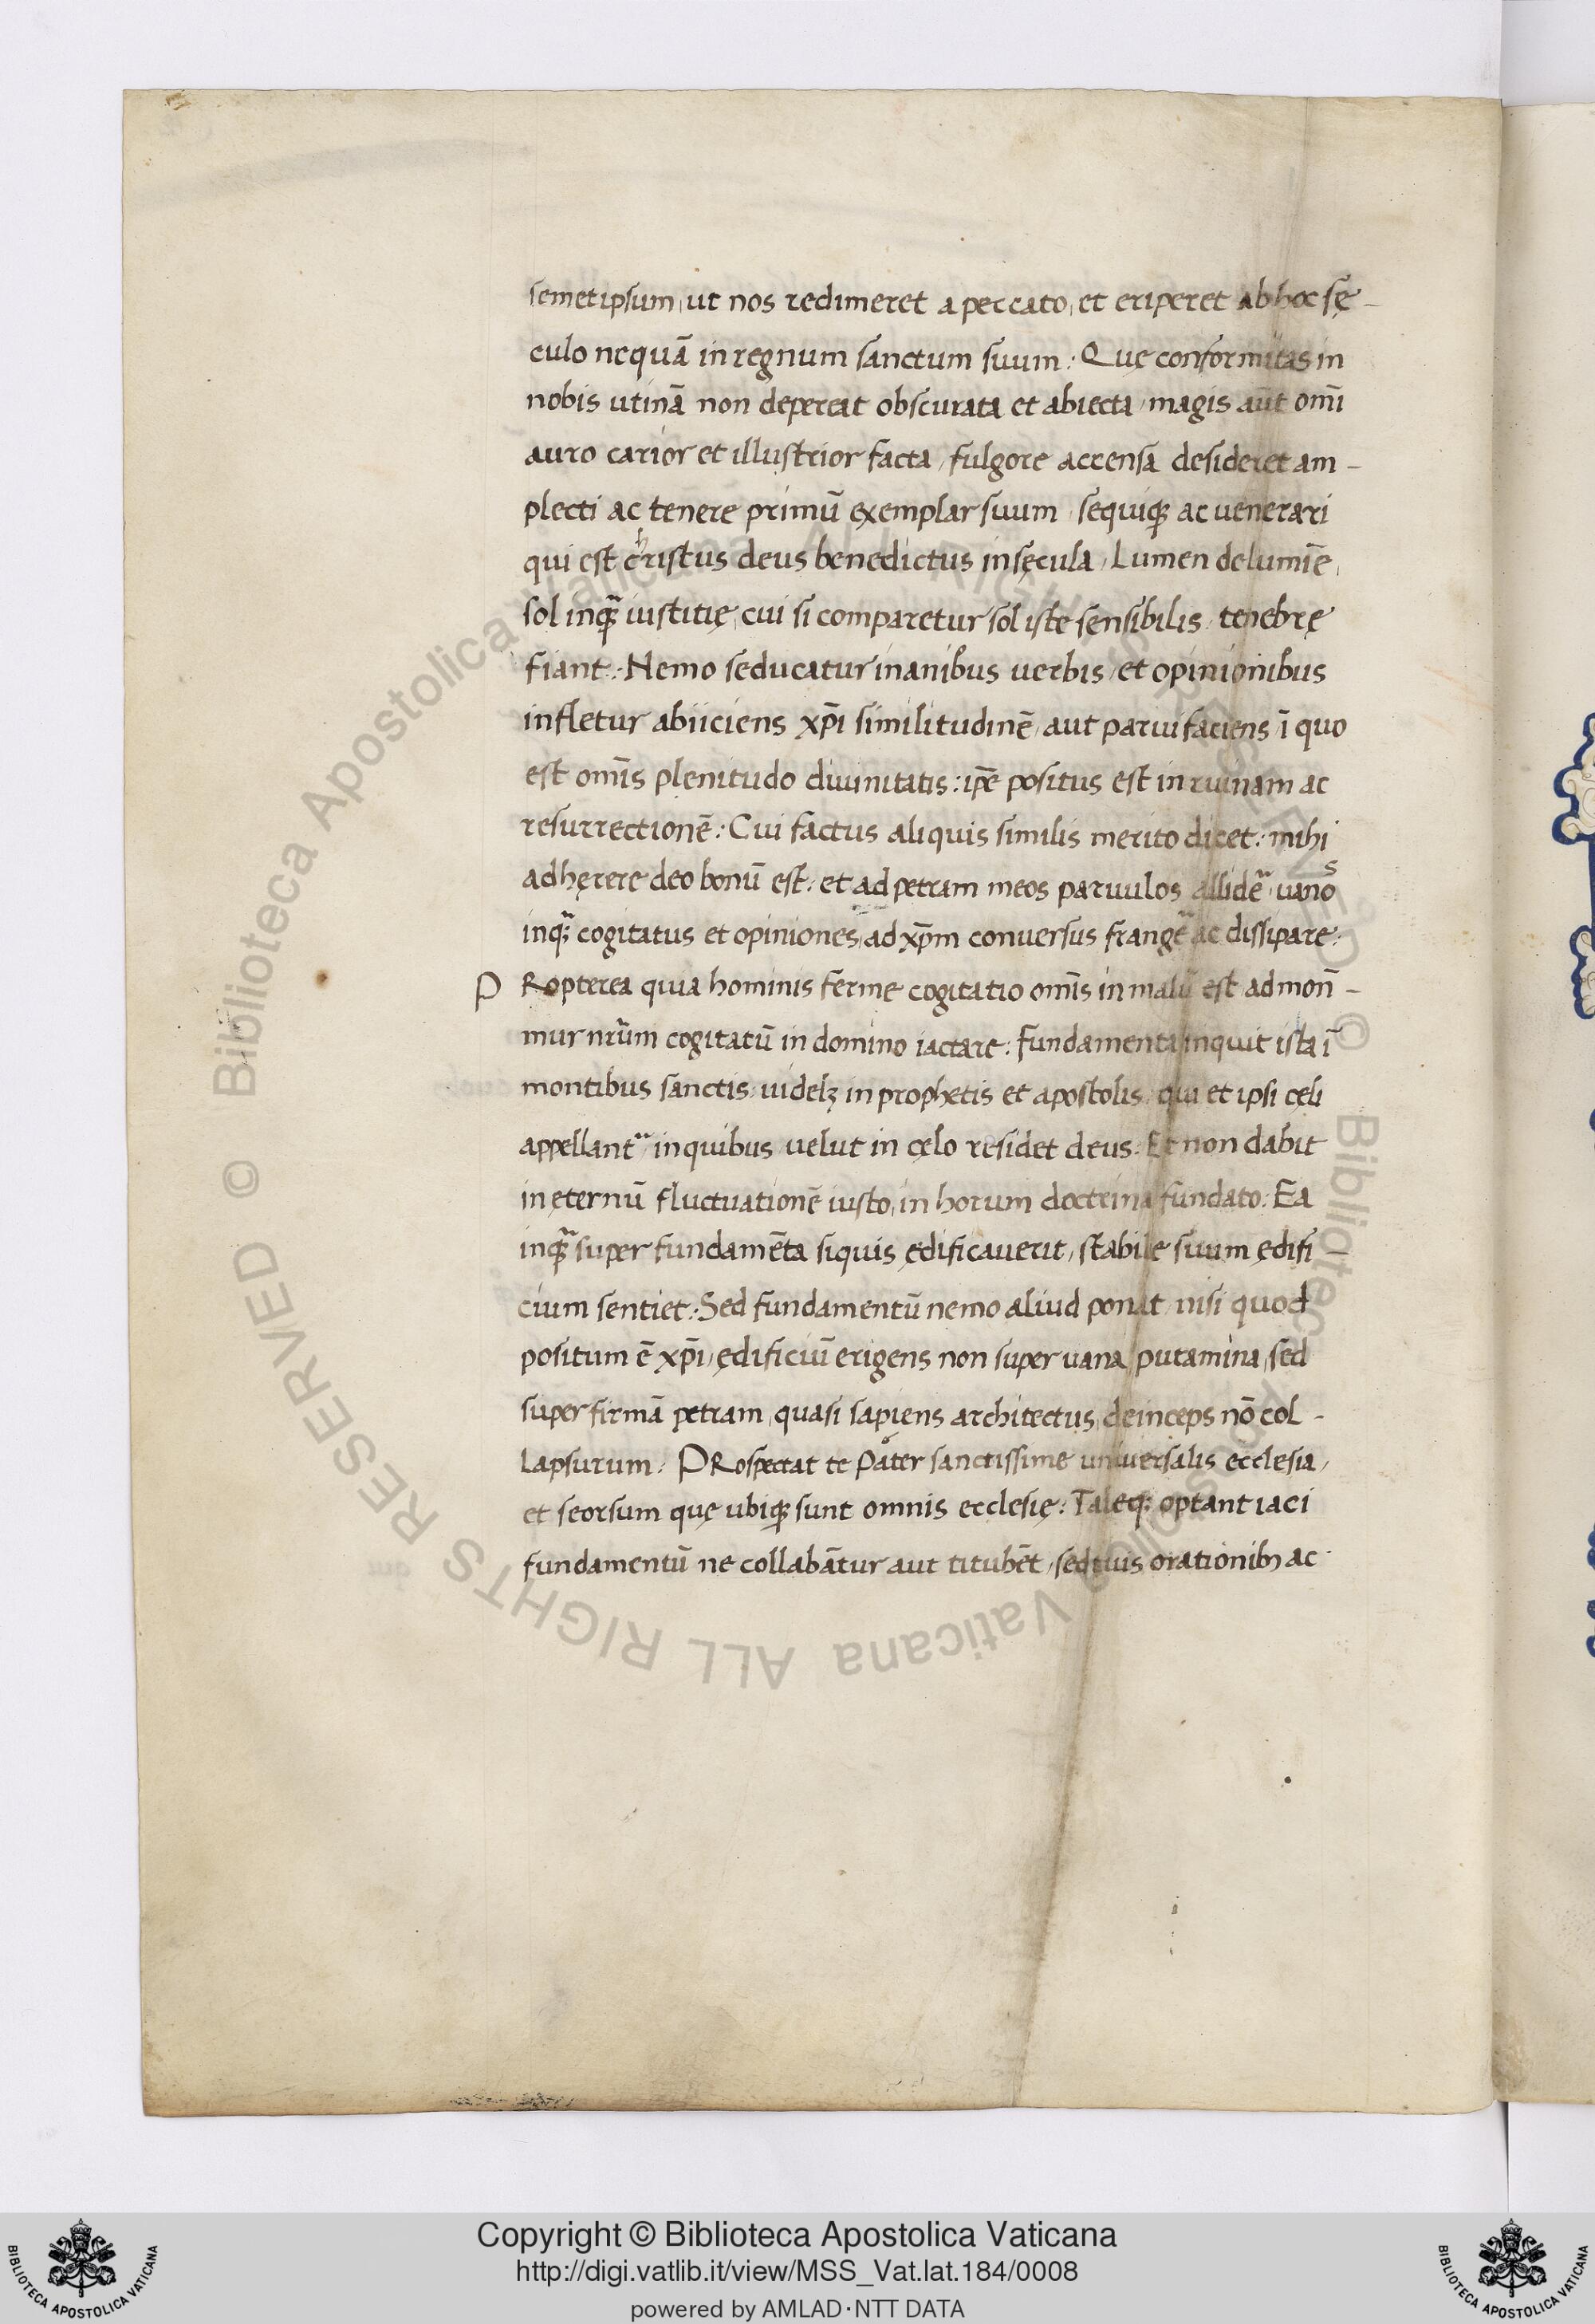 semetipsum, ut nos redimeret a peccato, et eriperet ab hoc sę-
culo nequã in regnum sanctum suum: Quę conformitas in
nobis utinã non depereat obscurata et abiecta, magis aũt om̃i
auro carior et illustrior facta, fulgore accensa desideret am-
plecti ac tenere primũ exemplar suum, sequiq; ac venerari
qui est christus deus benedictus in sęcula, Lumen de lumĩe,
sol inq̃ iustitię, cui si comparetur sol iste sensibilis, tenebrę
fiant: Nemo seducatur inanibus uerbis, et opinionibus
infletur abiiciens xp̃i similitudinẽ, aut parui faciens, ĩ quo
est om̃is plenitudo diuinitatis: ip̃e positus est in ruinam ac
resurrectionẽ: Cui factus aliquis similis merito dicet: mihi
adhęrere deo bonũ est: et ad petram meos paruulos allidẽ, uanos
inq̃ cogitatus et opiniones, ad xp̃m conuersus frangẽ ac dissipare:
PRopterea quia hominis ferme cogitatio om̃is in malũ est admon̄-
mur nr̃um cogitatũ in domino iactare: Fundamenta inquit ista ĩ
montibus sanctis: uidelꝫ in prophetis et apostolis, qui et ipsi cęli
appellant᷑, in quibus uelut in cęlo residet deus. Et non dabit
in ęternũ fluctuationẽ iusto, in horum doctrina fundato: Ea
inq̃ super fundamẽta siquis ędificauerit, stabile suum ędifi-
cium sentiet: Sed fundamentũ nemo aliud ponat, nisi quod
positum ẽ xp̃i, ędificiũ erigens non super uana putamina, sed
super firmã petram, quasi sapiens architectus, deinceps nõ col-
lapsurum: PRospectat te Pater sanctissime uniuersalis ecclesia,
et seorsum quę ubiq; sunt omnis ecclesię: Taleq; optant iaci
fundamentũ ne collabãtur aut titubẽt, sed tuis orationibꝫ ac
Copyright © Biblioteca Apostolica Vaticana
http://digi.vatlib.it/view/MSS_Vat.lat.184/0008
powered by AMLAD·NTT DATA
BIBLIOTECA APOSTOLICA VATICANA
BIBLIOTECA APOSTOLICA VATICANA
© Biblioteca Apostolica Vaticana ALL RIGHTS RESERVED
© Biblioteca Apostolica Vaticana ALL RIGHTS RESERVED